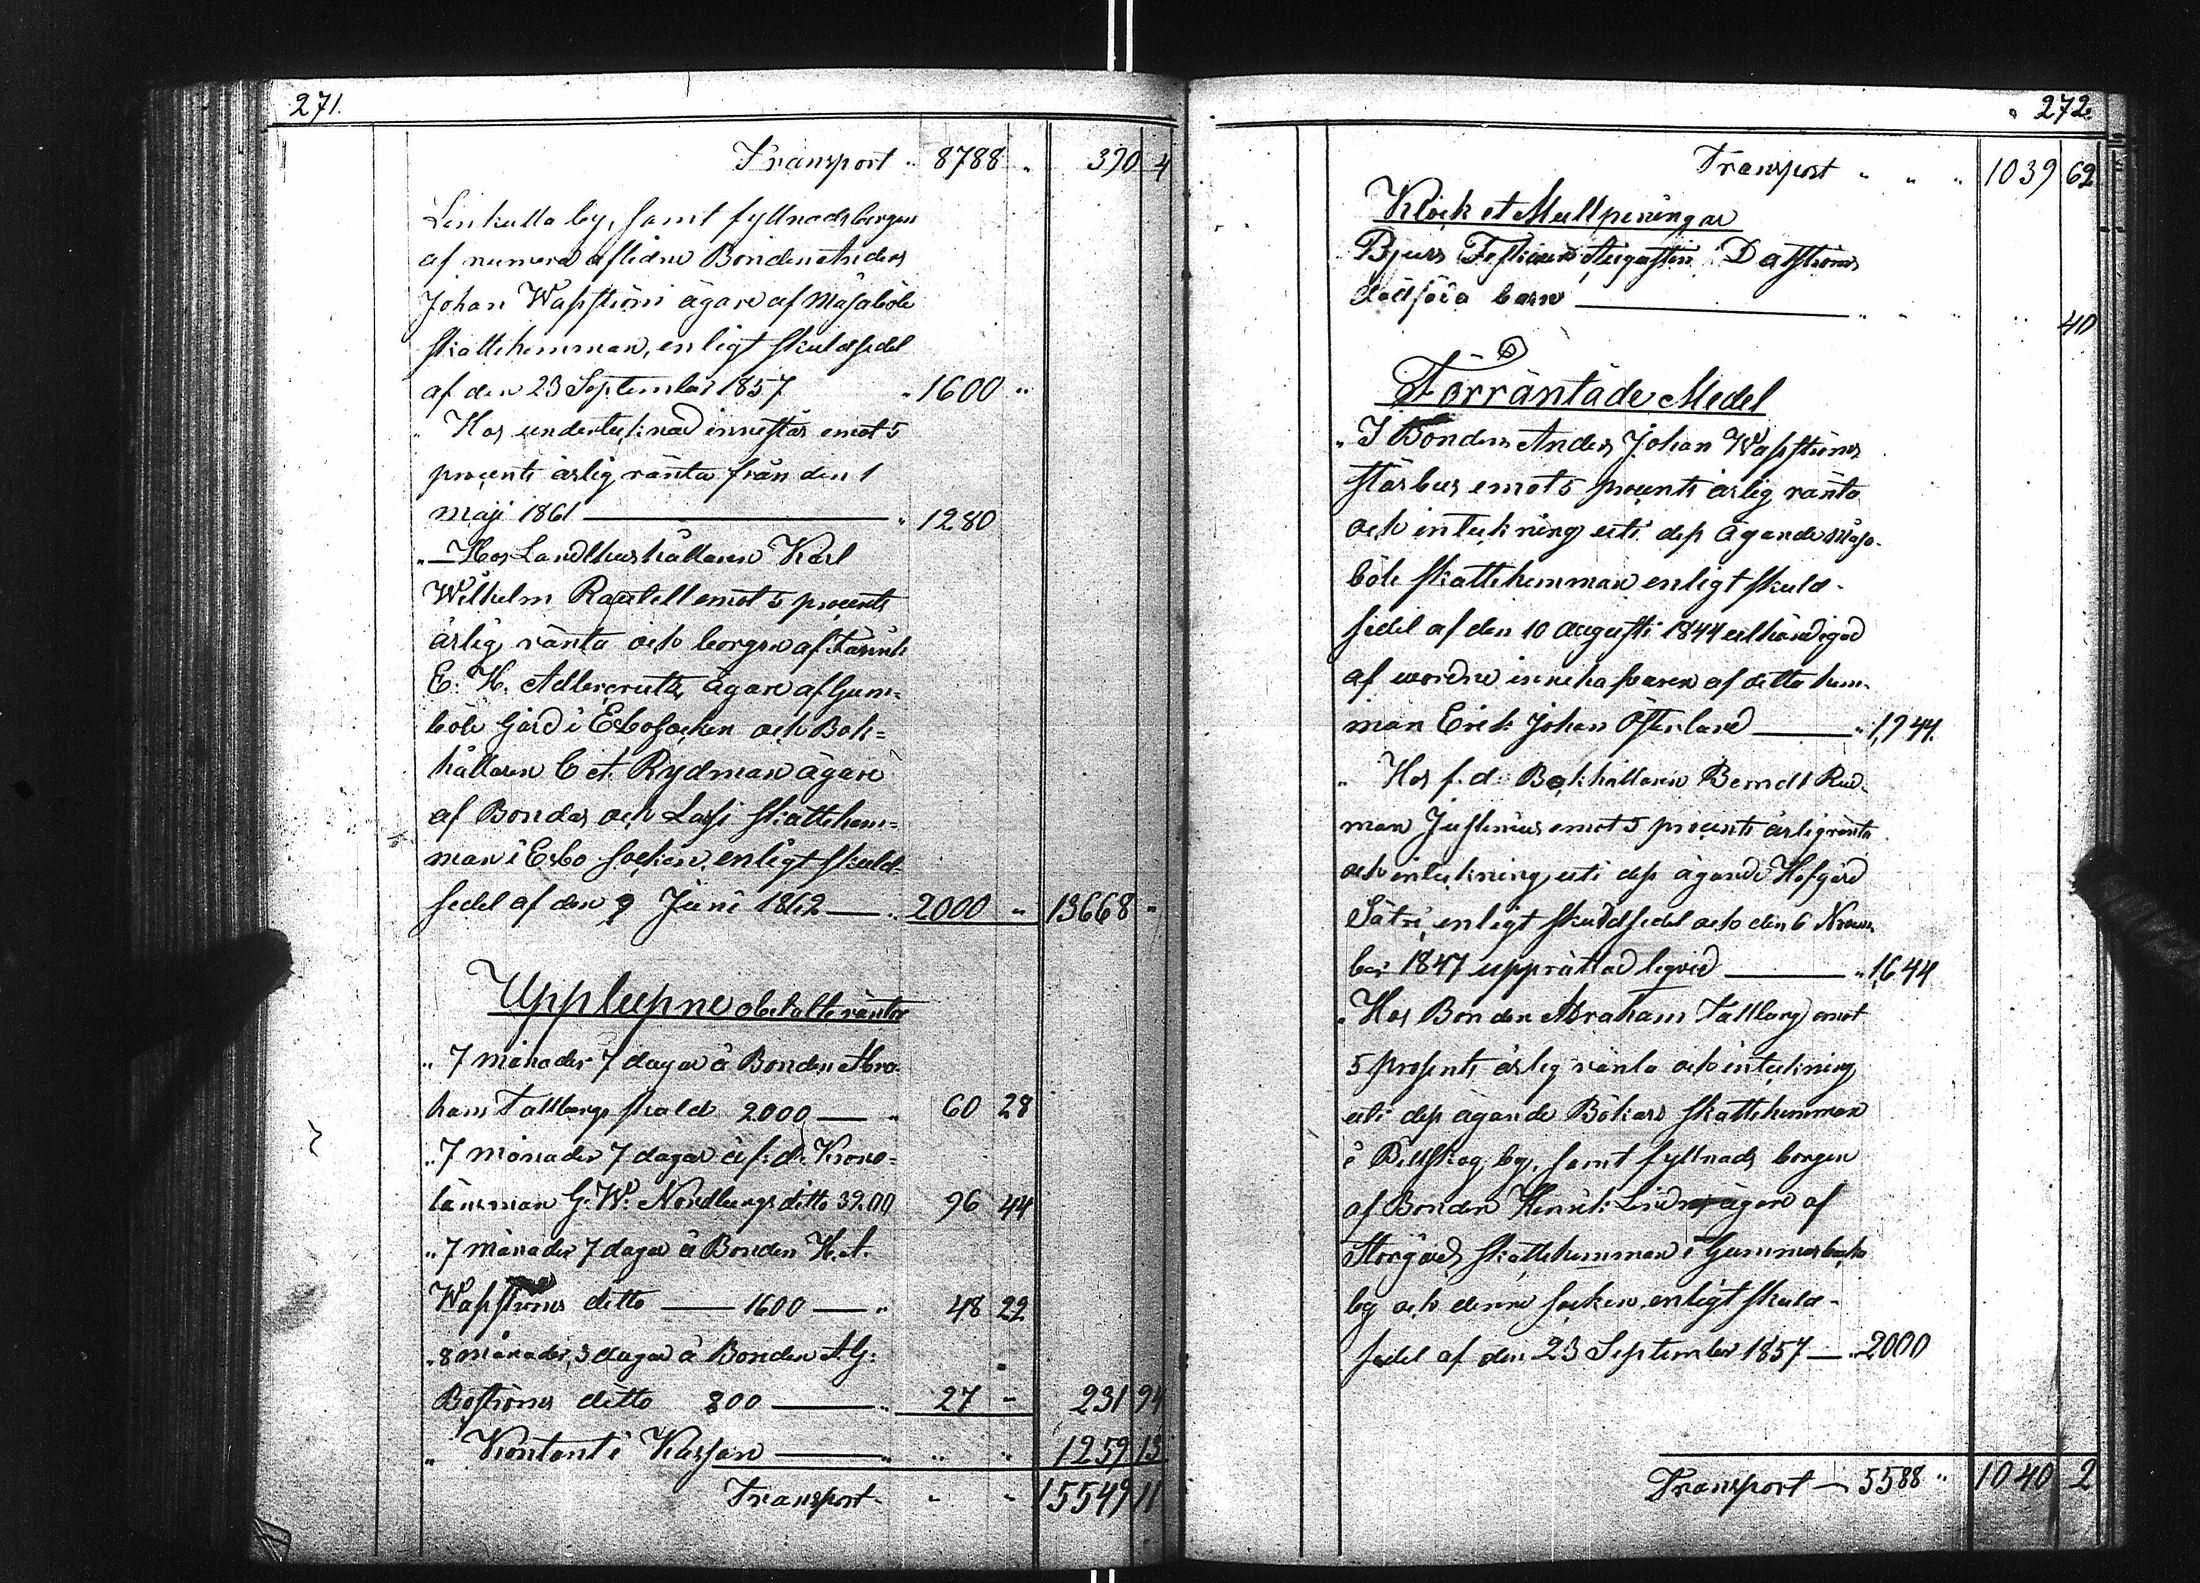 271.
Transport " 8788 " 390 4
Linkulla by, samt fyllnadsborgen
af numera aflidne Bonden Anders
Johan Wasström ägare af Masaböle
skattehemman, enligt skuldsedel
af den 23 September 1857 " 1600 "
" Hos undertecknad innestår emot 5
procents årlig ränta från den 1
maji 1861 — " 1280
" Hos Landthushållaren Karl
Wilhelm Rautell emot 5 procents
årlig ränta och borgen af
E. H. Adlercreutz, ägare af Gum-
böle Gård i Esbo Socken och Bok-
hållaren C A Rydman ägare
af Bondas och Lassi skattehem-
man i Esbo Socken, enligt skuld-
sedel af den 9 Juni 1862 — " 2000 " 13668 "
Upplupne obetalte räntor
" 7 månader 7 dagar å Bonden Abra-
ham Tallbergs skuld 2000 — " 60 28
" 7 månader 7 dagar å f. d. Krono-
länsman G. W. Nordbergs ditto 3200 96 44
" 7 månader 7 dagar å Bonden K. A.
Wasströms ditto — 1600 — " 48 22
" 8 månader, 3 dagar å Bonden A. G.
Boströms ditto 800 — " 27 " 231 94
" Kontant i Kassan — " " " 1259 13
Transport " " " 15549 11
272.
Transport " " " 1039 62
Klock et Mullpeningar
Bjurs Augustin
dödföda barn — " " " 40
Förräntade Medel
" I Bonden Anders Johan Wasströms
stärbus emot 5 procents årlig ränta
och inteckning uti dess ägande Masa-
böle skattehemman enligt skuld-
sedel af den 10 Augusti 1844 uthändigad
af wordne innehafvaren af detta hem-
man Erik Johan Österlund — " 1,944.
" Hos f. d. Bokhållaren Berndt Rud-
man Justenius emot 5 procents årlig ränta
och inteckning uti dess ägande Hofgård
Säteri, enligt skuldsedel och den 6 Novem
ber 1847 upprättad liqvid — " 1,644
" Hos Bonden Abraham Tallberg emot
5 prosents årlig ränta och inteckning
uti dess ägande Bökars skattehemman
i Billskog by, samt fyllnads borgen
af Bonden Henrik ägare af
Storgårds skattehemman i Gummersbacka
by och denne socken, enligt skuld-
sedel af den 23 September 1857 — " 2000
Transport — 5588 " 1040 2